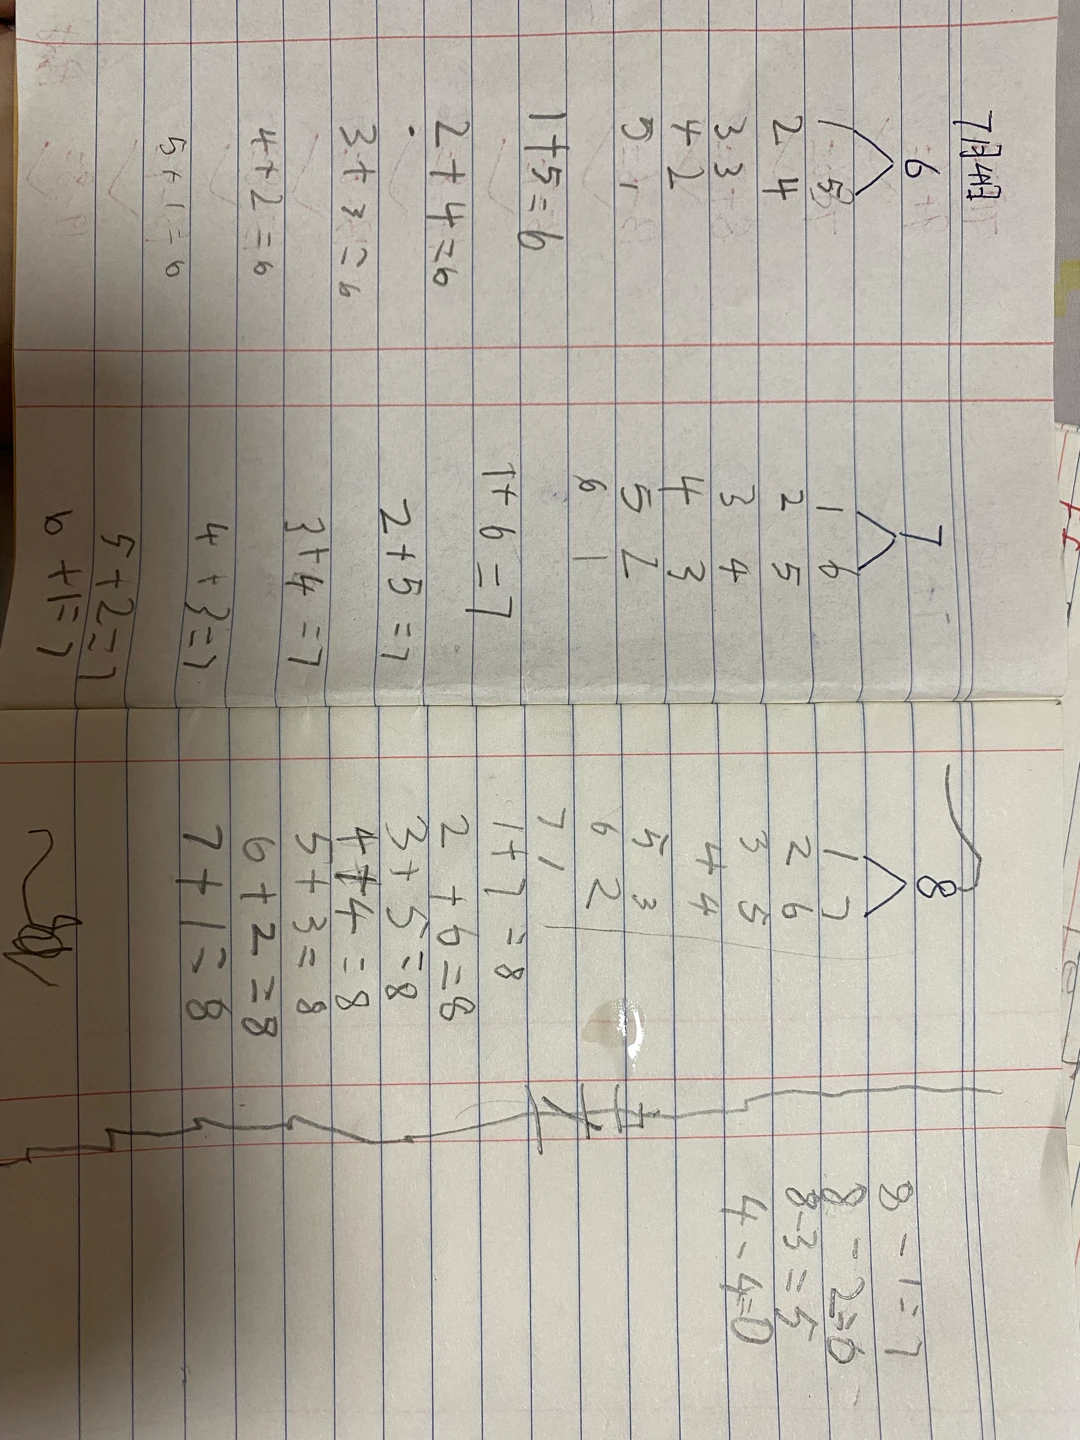 7月4日
6
1 5
2 4
3 3
4 2
5 1
1+5=6
2+4=6
3+3=6
4+2=6
5+1=6
7
1 6
2 5
3 4
4 3
5 2
6 1
1+6=7
2+5=7
3+4=7
4+3=7
5+2=7
6+1=7
8
1 7
2 6
3 5
4 4
5 3
6 2
7 1
1+7=8
2+6=8
3+5=8
4+4=8
5+3=8
6+2=8
7+1=8
8-1=7
8-2=6
8-3=5
4-4=0